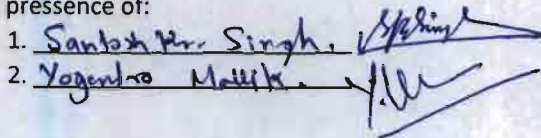 pressence of:
1. Santosh Kr. Singh. SKSingh
2. Yogendra Mallik.